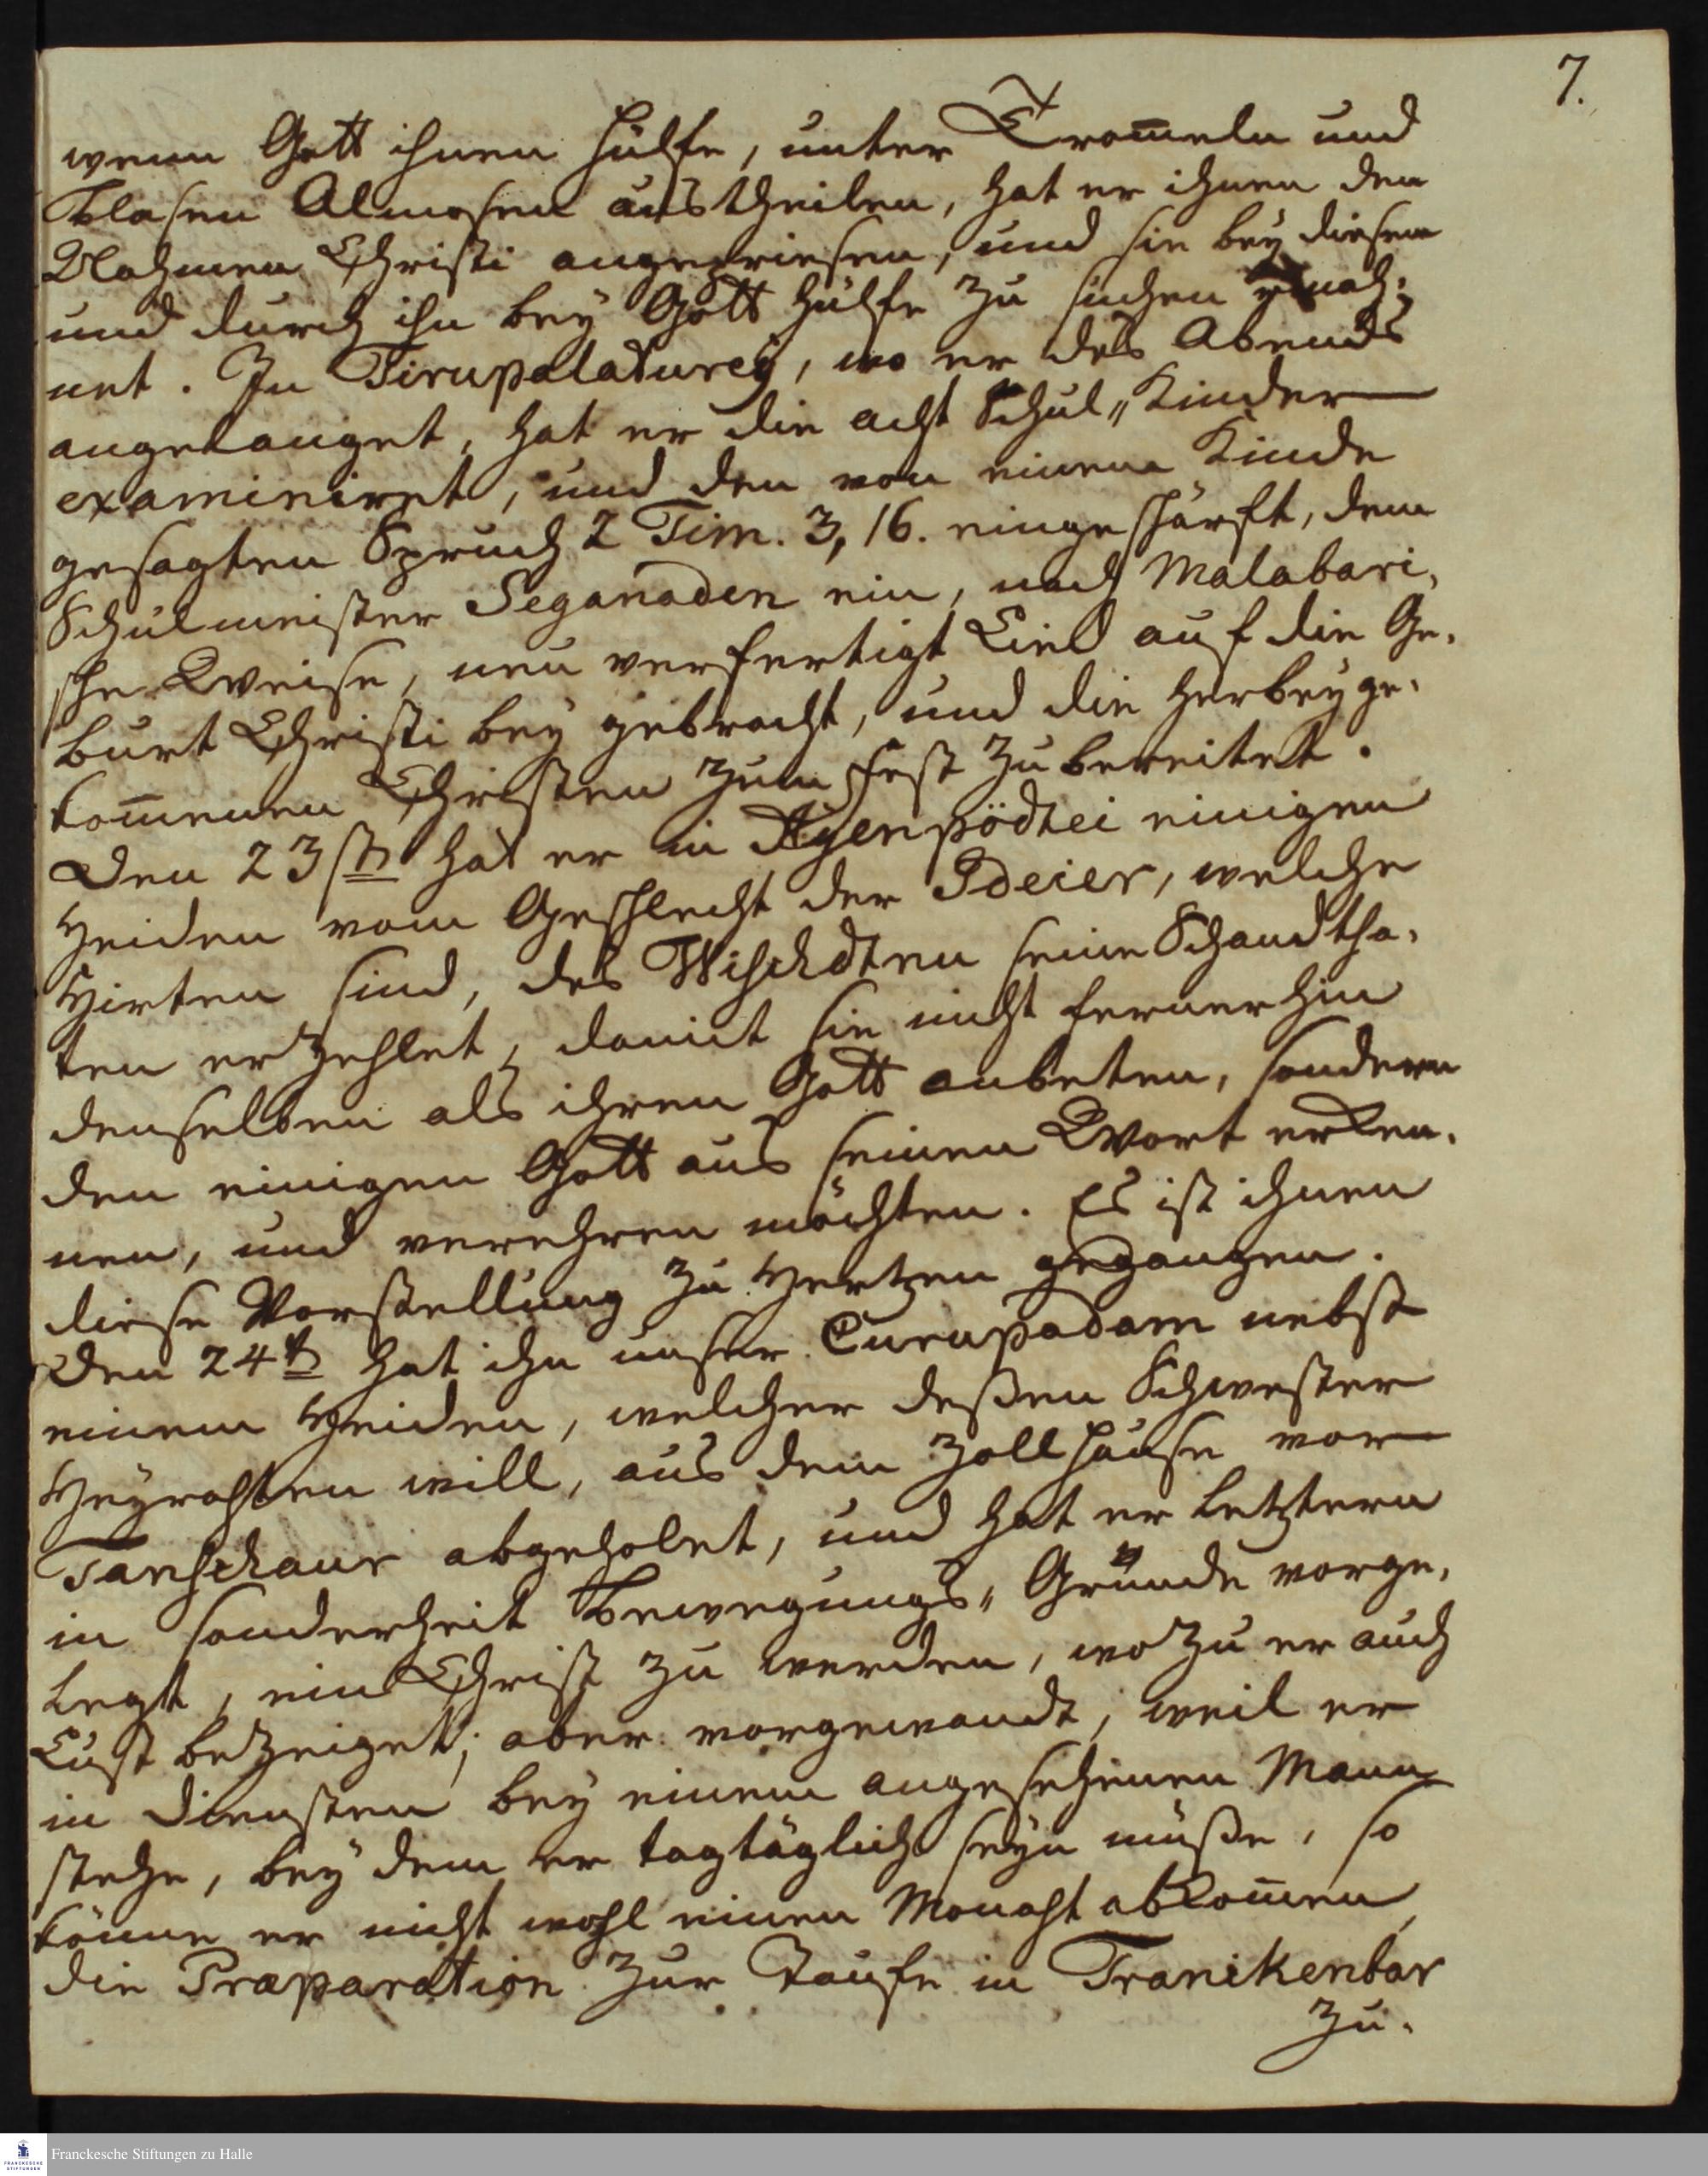 7.
wenn Gott ihnen hülfe, unter Trom̄eln und
Blasen Almosen austheilen, hat er ihnen den
Nahmen Christi angepriesen, und sie bey diesem
und durch ihn bey Gott Hülfe zu suchen ermah-
net. In Tirupalaturey, wo er des Abends
angelanget, hat er die acht Schul„Kinder
examiniret, und den von einem Kinde
gesagten Spruch 2 Tim. 3, 16. eingeschärft, dem
Schulmeister Seganaden ein, nach Malabari-
sche Weise, neu verfertigt Lied auf die Ge-
burt Christi bey gebracht, und die herbeyge-
kom̄enen Christen zum Fest zubereitet.
Den 23sten hat er in Ayenpödtei einigen
Heiden vom Geschlecht der Ideier, welche
Hirten sind, des Wischtnu seine Schandtha-
ten erzehlet, damit sie nicht fernerhin
denselben als ihren Gott anbeten, sondern
den einigen Gott aus seinem Wort erken-
nen, und verehren möchten. Es ist ihnen
diese Vorstellung zu Hertzen gegangen.
Den 24ten hat ihn unser Curupadam nebst
einem Heiden, welcher deßen Schwester
Heyrathen will, aus dem Zollhause vor
Tanschaur abgeholet, und hat er letztern
in sonderheit Bewegungs„Gründe vorge-
legt, ein Christ zu werden, wozu er auch
Lust bezeiget; aber vorgewandt, weil er
in Diensten bey einem angesehenen Mann
stehe, bey dem er tagtäglich seyn müße, so
könne er nicht wohl einen Monaht abkom̄en,
die Præparation zur Taufe in Tranckenbar
zu-
Franckesche Stiftungen zu Halle
FRANCKESCHE STIFTUNGEN